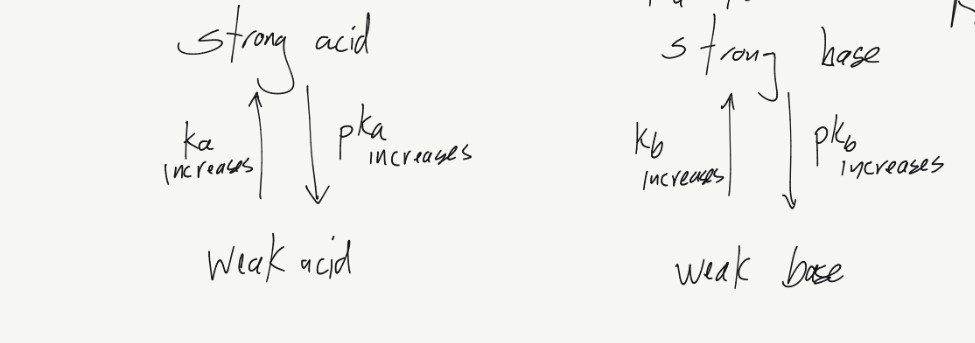 strong acid
ka
increases
pka
increases
Weak acid
strong base
kb
increases
pkb
increases
weak base